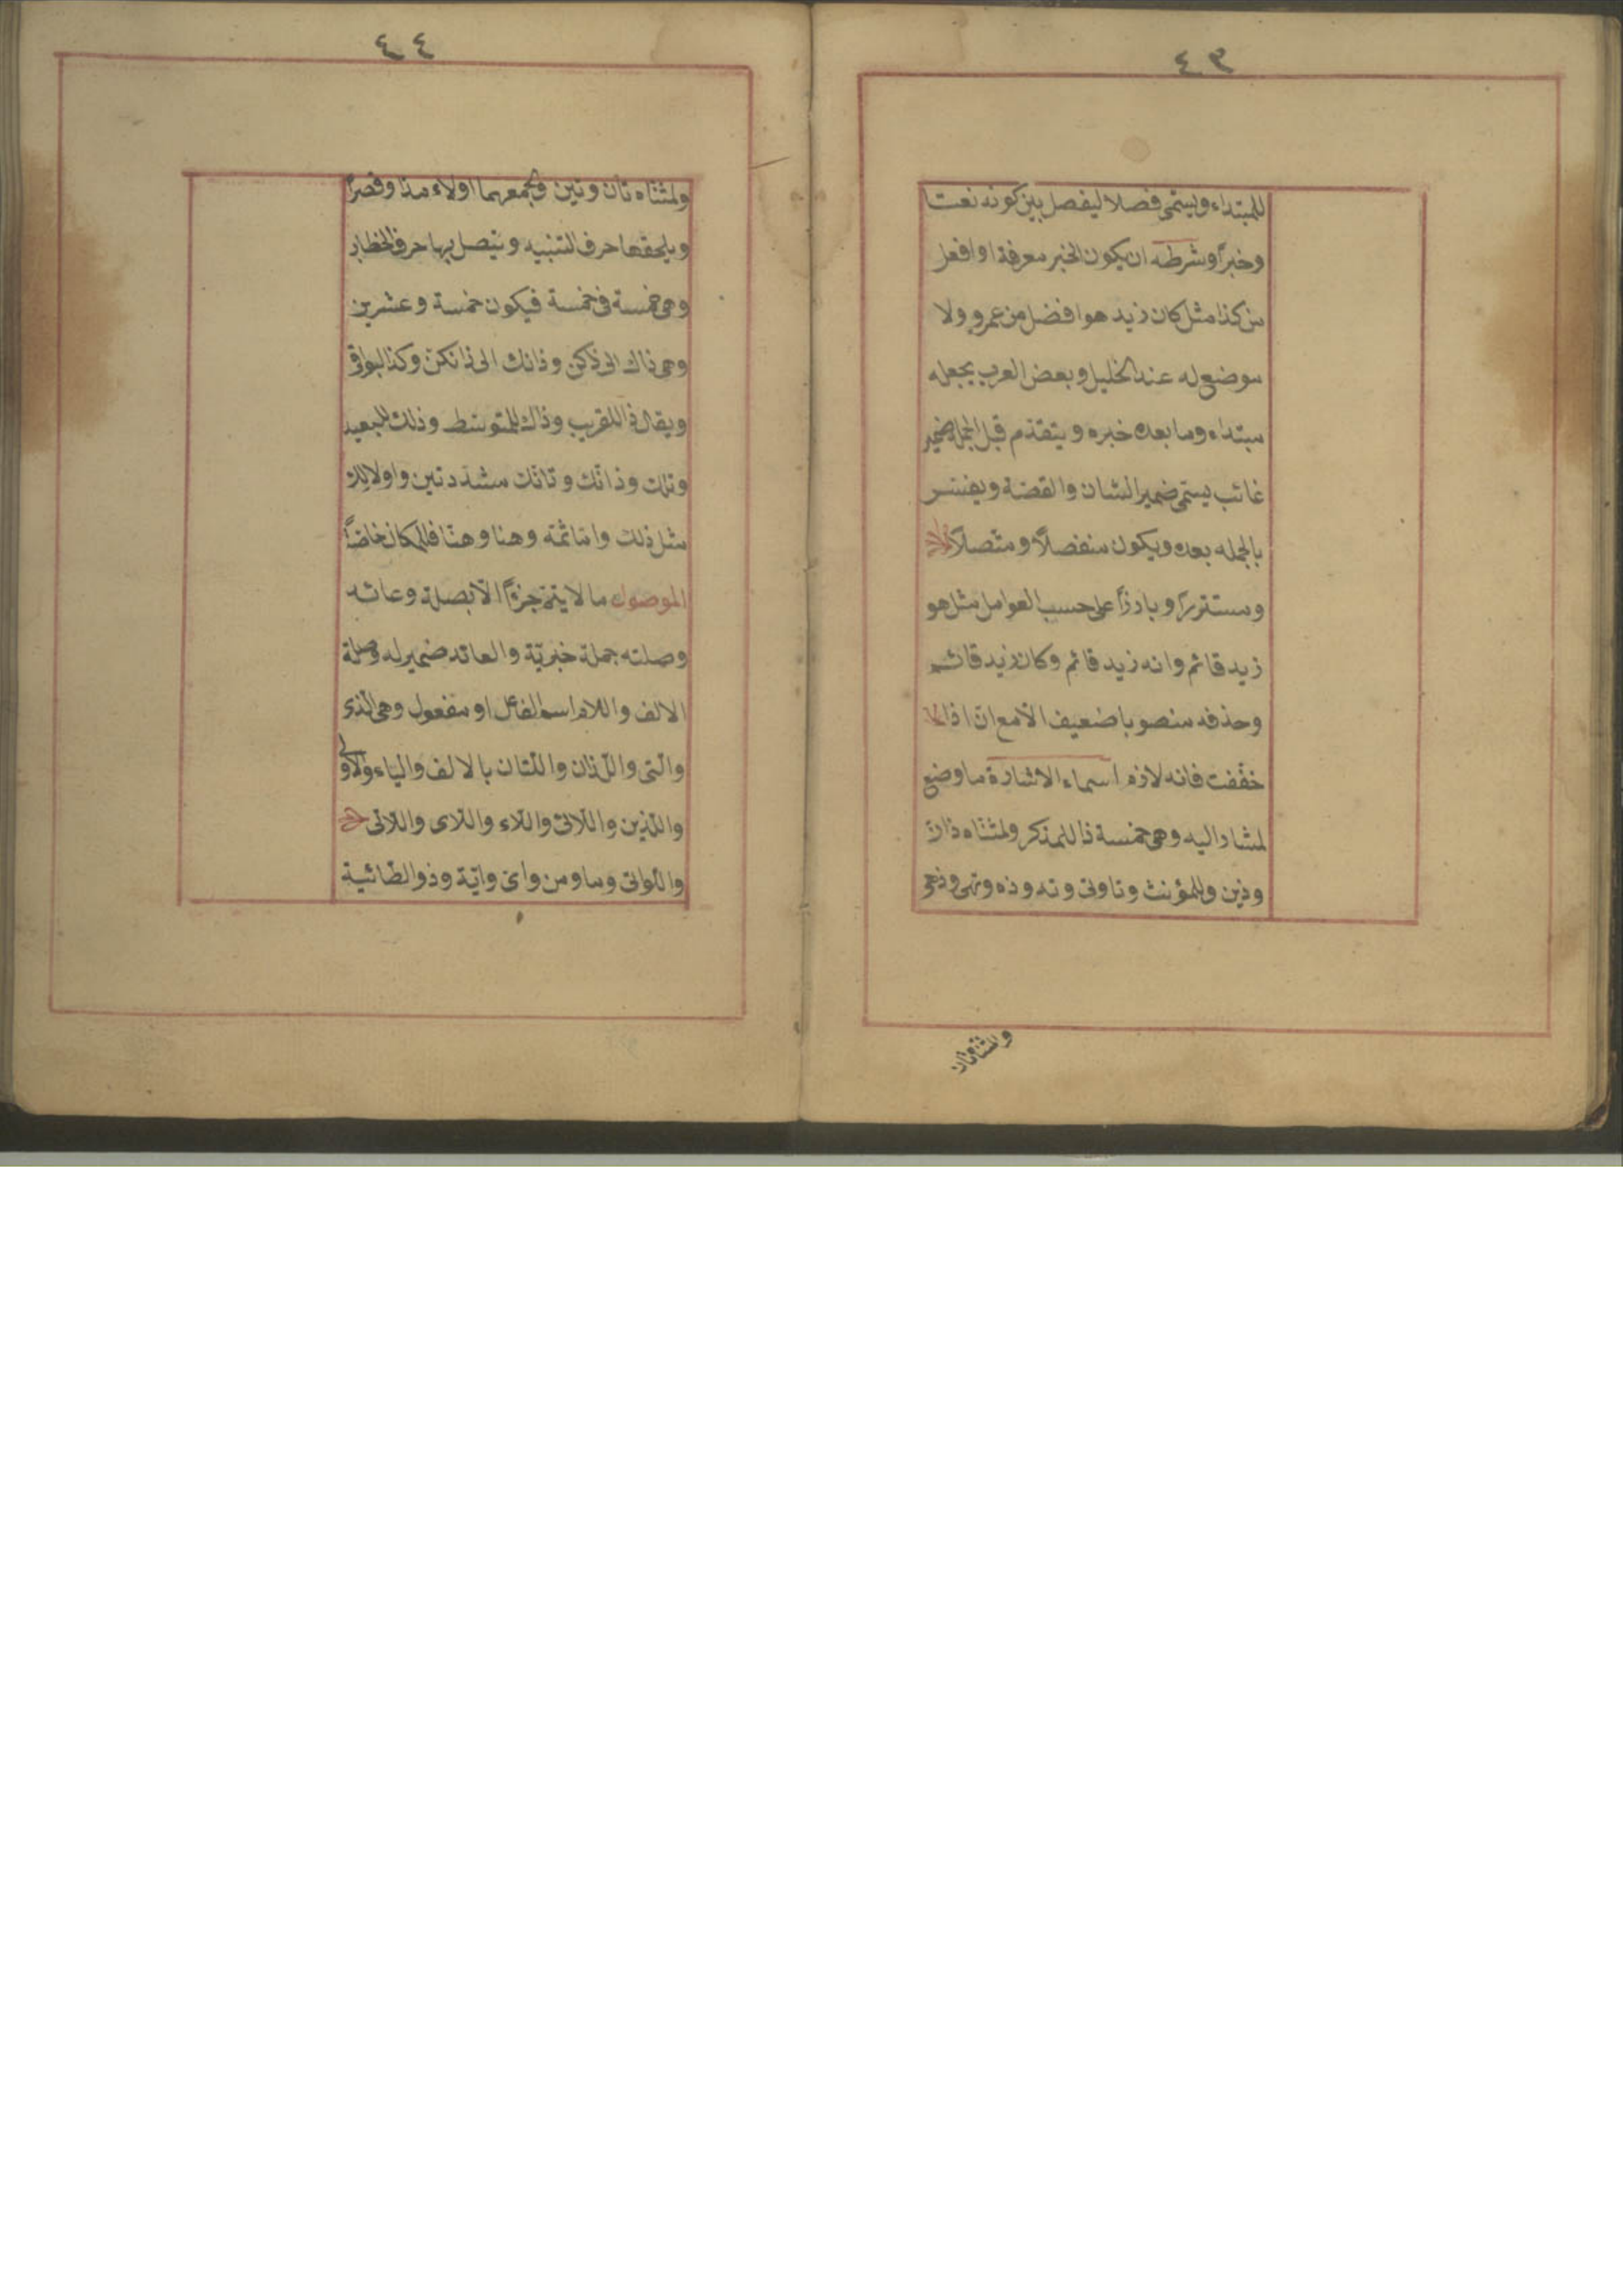 ٤٣
للمبتداء ويسمى فصلا ليفصل بين كونه نعتا
وخبرًا وشرطه ان يكون الخبر معرفة او افعل
من كذا مثل كان زيد هو افضل من عمرو ولا
موضع له عند الخليل وبعض العرب يجعله
مبتداء وما بعده خبره ويتقدّم قبل الجملة ضمير
غائب يسمى ضمير الشان والقصّة ويفسّر
بالجمله بعده ويكون منفصلًا ومتّصلًا
ومستترًا وبارزًا على حسب العوامل مثل هو
زيد قائم وانه زيد قائم وكان زيد قائم
وحذفه منصوبا ضعيف الّا مع انّ اذا
خفّفت فانه لازم اسماء الاشارة ما وضع
لمشار اليه وهى خمسة ذا للمذكر ولمثناه ذان
وذين وللمؤنث وتا وتى وته وذه وتهى وذهى
ولمثناه تان
٤٤
ولمثناه تان وتين ولجمعهما اولاء مدّا وقصرًا
ويلحقها حرف التنبيه ويتصل بها حرف الخطاب
وهى خمسة فى خمسة فيكون خمسة وعشرين
وهى ذاك الى ذاكن وذانك الى ذانكنّ وكذا البواقى
ويقال ذا للقريب وذاك للمتوسط وذلك للبعيد
وتلك وذانّك وتانّك مشدّدتين واولالك
مثل ذلك وامّا ثمّه وهنا وهنّا فللمكان خاصّةً
الموصول ما لا يتمّ جزءًا الّا بصلة وعائد
وصلته جملة خبريّة والعائد ضمير له وصلة
الالف واللام اسم الفاعل او مفعول وهى الّذى
والّتى واللّذان واللّتان بالالف والياء والاولى
والّذين واللّاتى واللّاء واللّاى واللّاتى
واللّواتى وما ومن واىّ وايّة وذو الطّائية